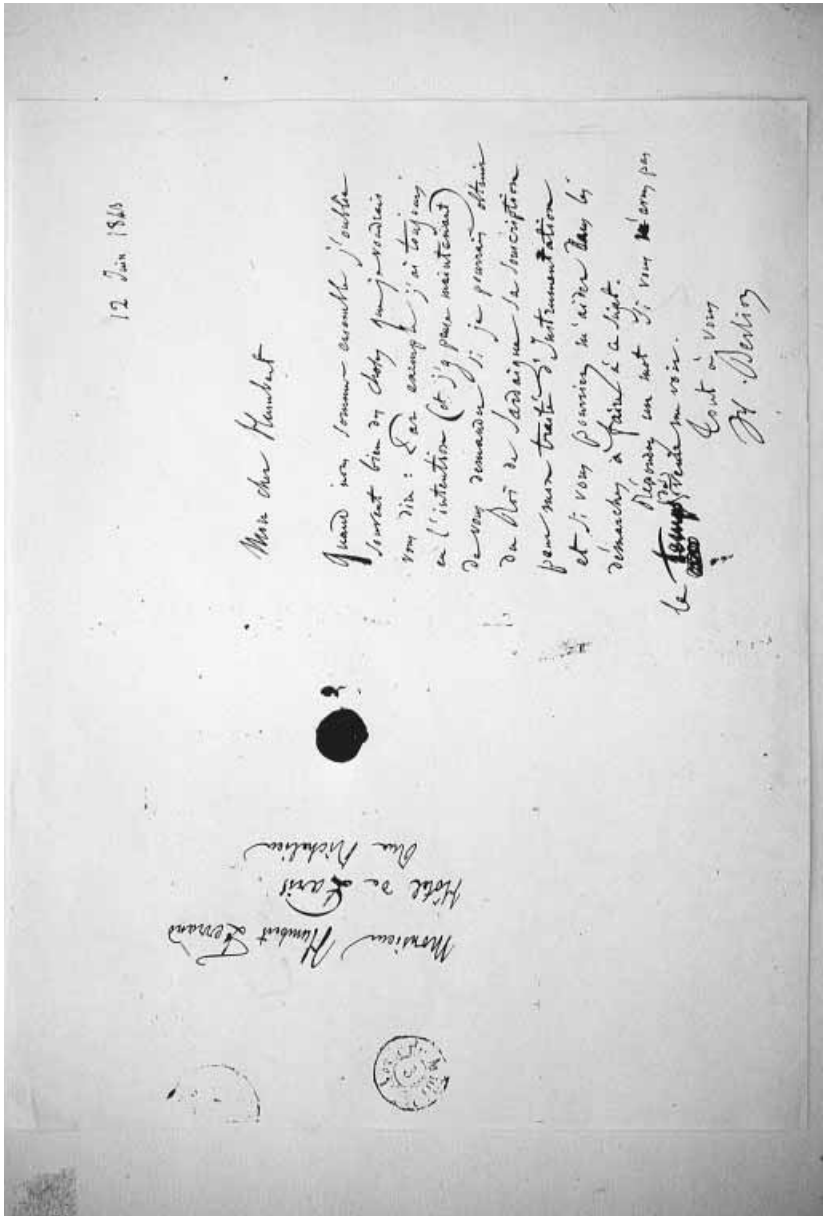 12 Juin 1843
Mon cher Humbert
Quand nous sommes ensemble j'oublie
souvent bien des choses que je voudrais
vous dire : Par exemple j'ai toujours
eu l'intention (et j'y pense maintenant)
de vous demander si je pourrais obtenir
du Roi de Sardaigne sa souscription
pour mon traité d'Instrumentation
et si vous pourriez m'aider dans les
démarches à faire à ce sujet.
Répondez un mot si vous n'avez pas
le temps de venir me voir.
Tout à vous
H. Berlioz
Monsieur Humbert Ferrand
Hôtel de Paris
Rue Richelieu